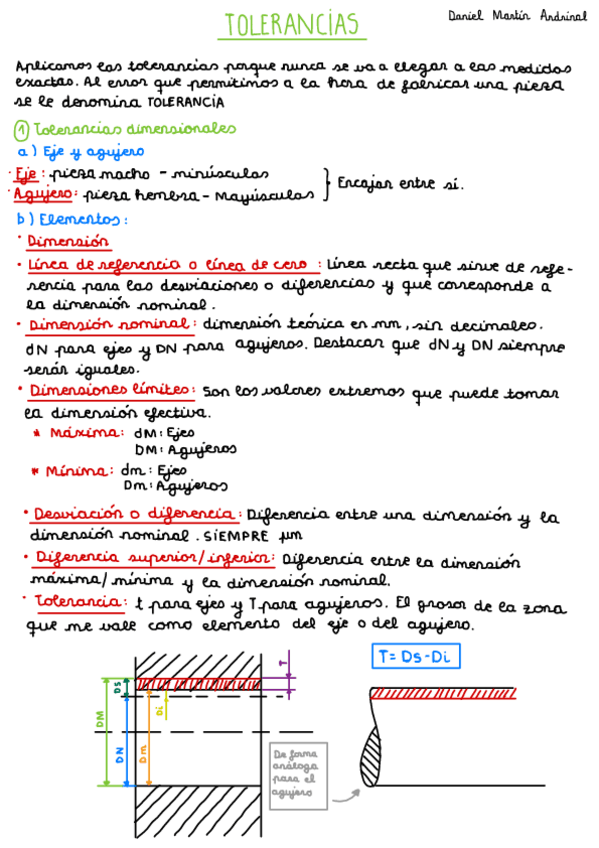 TOLERANCIAS
Daniel Martín Andrinal
Aplicamos las tolerancias porque nunca se va a llegar a las medidas
exactas. Al error que permitimos a la hora de fabricar una pieza
se le denomina TOLERANCIA
① Tolerancias dimensionales
a) Eje y agujero
· Eje: pieza macho - minúsculas
· Agujero: pieza hembra - Mayúsculas
Encajar entre sí.
b) Elementos:
· Dimensión
· Línea de referencia o línea de cero: Línea recta que sirve de refe-
rencia para las desviaciones o diferencias y que corresponde a
la dimensión nominal.
· Dimensión nominal: dimensión teórica en mm, sin decimales.
dN para ejes y DN para agujeros. Destacar que dN y DN siempre
serán iguales.
· Dimensiones límites: Son los valores extremos que puede tomar
la dimensión efectiva.
* Máxima: dM: Ejes
DM: Agujeros
* Mínima: dm: Ejes
Dm: Agujeros
· Desviación o diferencia: Diferencia entre una dimensión y la
dimensión nominal. SIEMPRE μm
· Diferencia superior/inferior: Diferencia entre la dimensión
máxima/mínima y la dimensión nominal.
· Tolerancia: t para ejes y T para agujeros. El grosor de la zona
que me vale como elemento del eje o del agujero.
T = Ds - Di
T
Ds
Di
DM
DN
Dm
De forma
análoga
para el
agujero